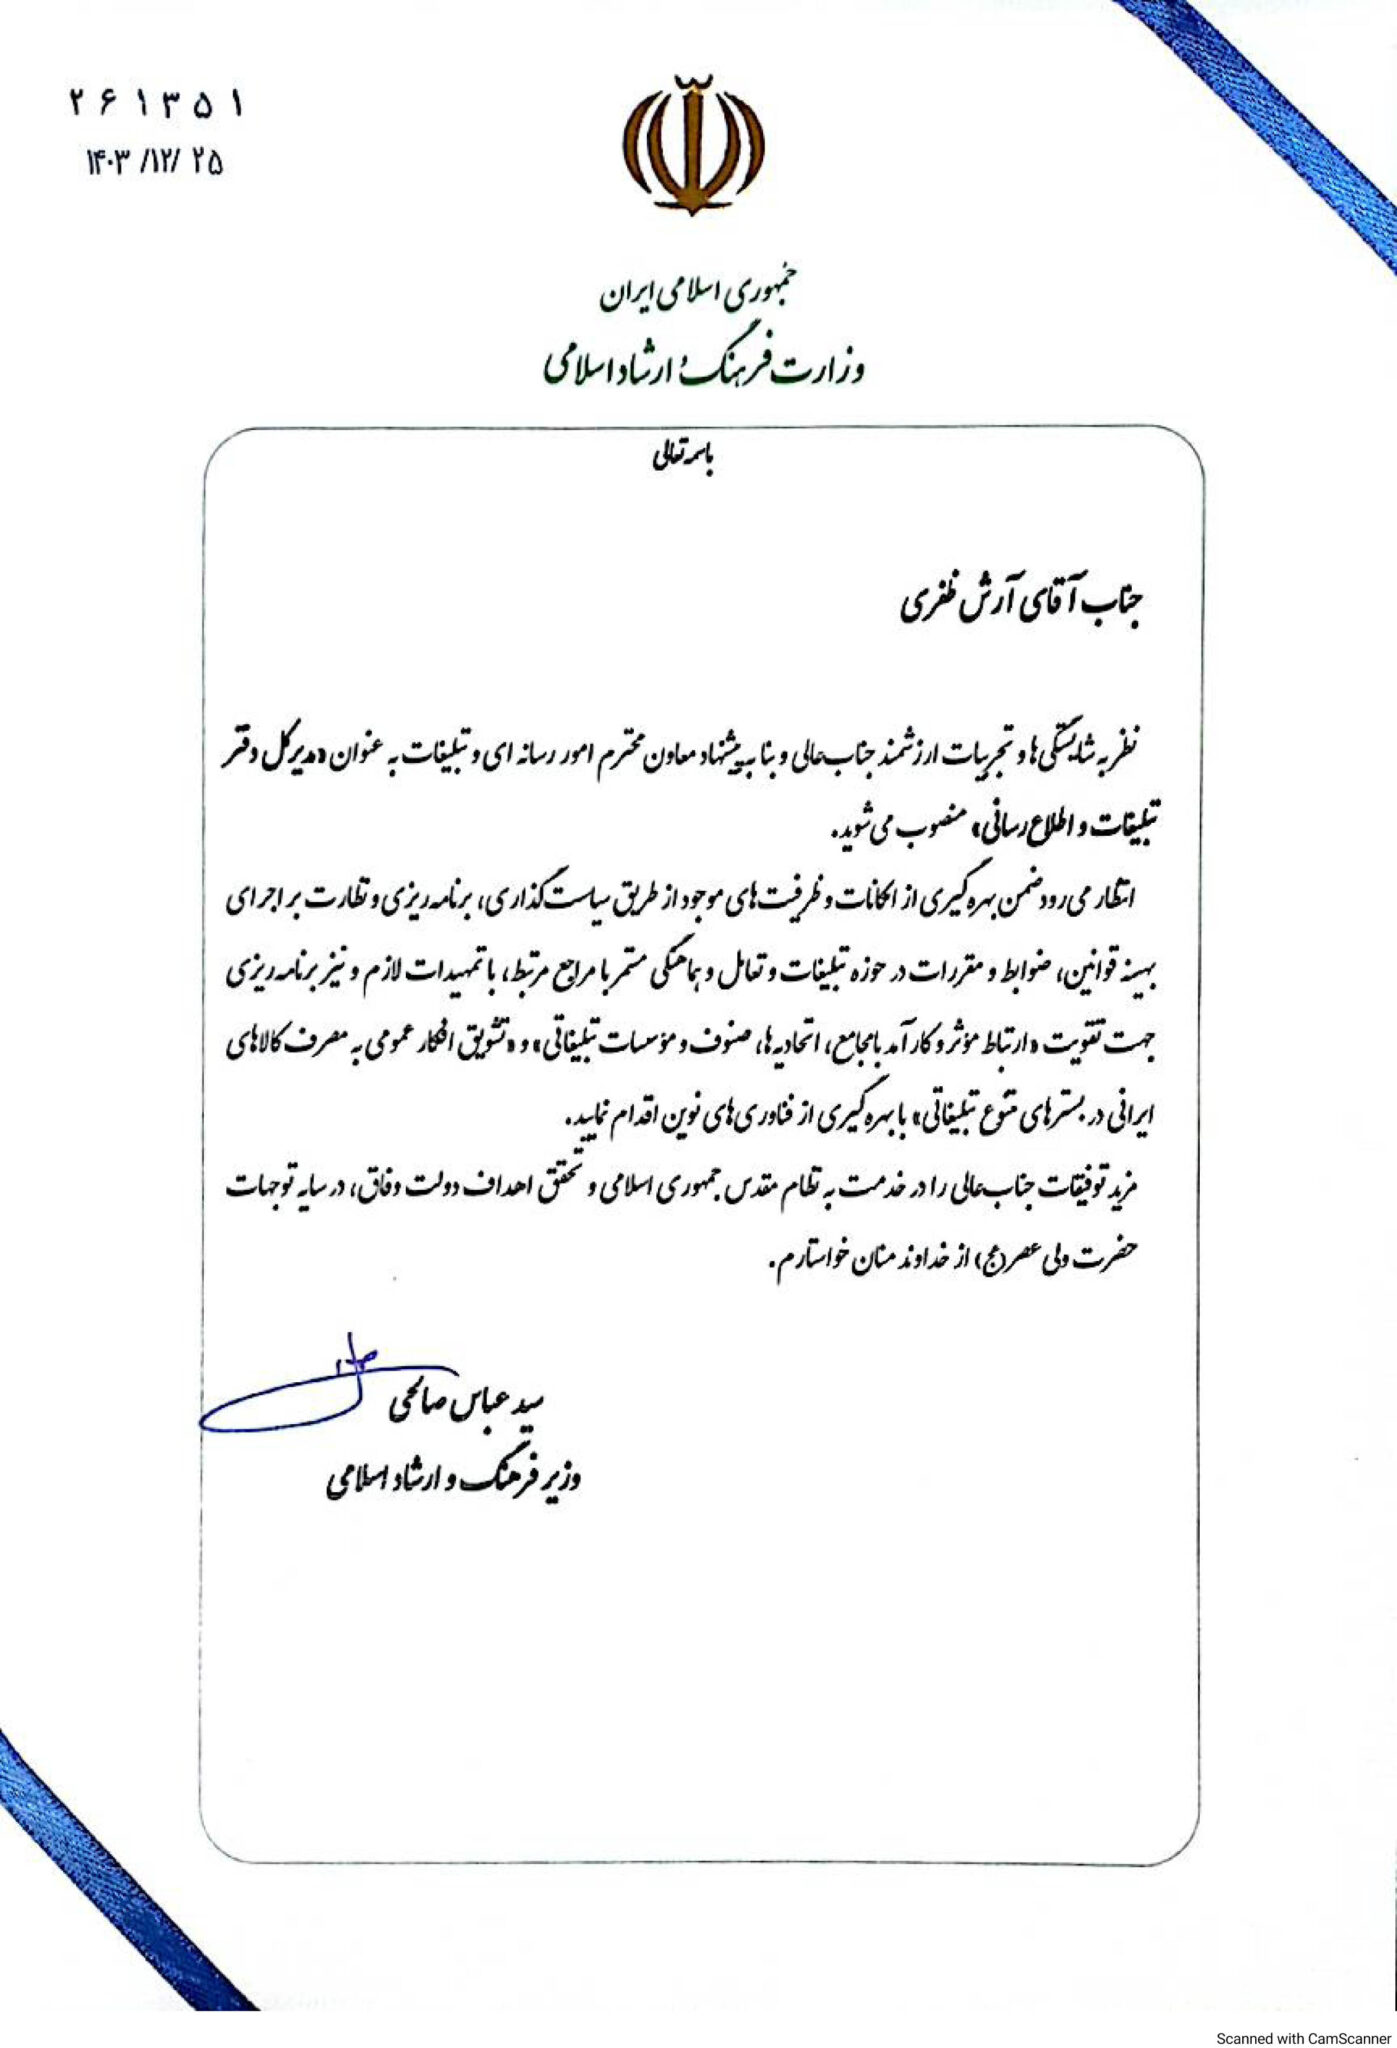 ۲۶۱۳۵۱
۱۴۰۳/۱۲/۲۵
جمهوری اسلامی ایران
وزارت فرهنگ و ارشاد اسلامی
باسمه تعالی
جناب آقای آرش ظفری
نظر به شایستگی‌ها و تجربیات ارزشمند جناب‌عالی و بنا به پیشنهاد معاون محترم امور رسانه ای و تبلیغات به عنوان «مدیرکل دفتر
تبلیغات و اطلاع‌رسانی» منصوب می‌شوید.
انتظار می‌رود ضمن بهره‌گیری از امکانات و ظرفیت‌های موجود از طریق سیاست‌گذاری، برنامه‌ریزی و نظارت بر اجرای
بهینه قوانین، ضوابط و مقررات در حوزه تبلیغات و تعامل و هماهنگی مستمر با مراجع مرتبط، با تمهیدات لازم و نیز برنامه‌ریزی
جهت تقویت «ارتباط مؤثر و کارآمد با مجامع، اتحادیه‌ها، صنوف و مؤسسات تبلیغاتی» و «تشویق افکار عمومی به مصرف کالاهای
ایرانی در بسترهای متنوع تبلیغاتی» با بهره‌گیری از فناوری‌های نوین اقدام نمایید.
مزید توفیقات جناب‌عالی را در خدمت به نظام مقدس جمهوری اسلامی و تحقق اهداف دولت وفاق، در سایه توجهات
حضرت ولی عصر(عج) از خداوند منان خواستارم.
سید عباس صالحی
وزیر فرهنگ و ارشاد اسلامی
Scanned with CamScanner